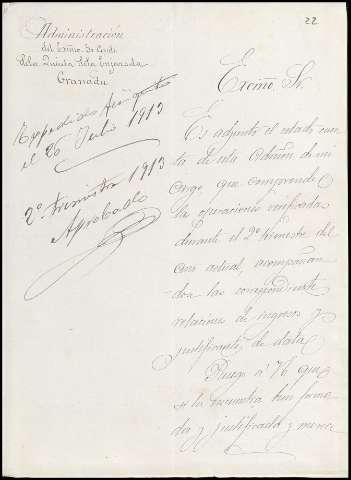 22
Administración
del Excmo. Sr. Conde
de la Quinta de la Enjarada
Granada
Expedido
el 26 Julio 1913
2º trimestre 1913
Aprobado
Excmo. Sr.
Es adjunto el estado cuen
ta de esta Admón de mi
cargo que comprende
las operaciones verificadas
durante el 2º trimestre del
año actual, acompañan
dose las correspondientes
relaciones de ingresos y
justificantes de data.
Ruego á V.E. que
si la encuentra bien forma
da y justificada y merece